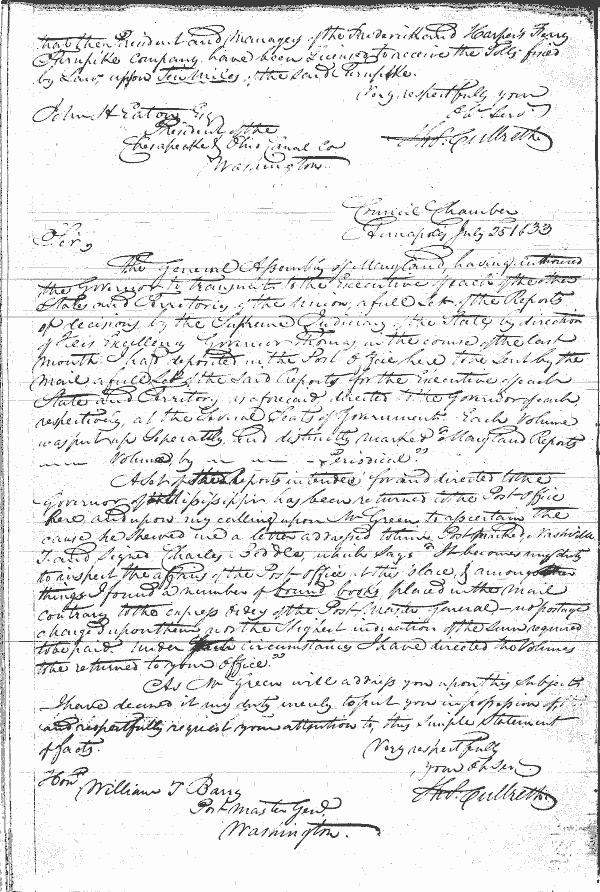 that the President and Managers of the Frederick and Harpers Ferry
Turnpike Company have been Licenced to receive the Tolls fixed
by Law upon Ten Miles of the said Turnpike.
Very respectfully your
Ob. Servt.
Ths. Culbreth
John H Eaton Esqr
President of the
Chesapeake & Ohio Canal Co
Washington
Council Chamber
Annapolis July 25 1833
Sir,
The General Assembly of Maryland, having
the Governor to transmit to the Executive of each of the other
States and Territories of the union, a full Set of the Reports
of decisions by the Supreme Judiciary of the State, by direction
of His Excellency Governor Thomas in the course of the last
month I had deposited in the Post Office here to be Sent by the
mail a full Set of the said Reports for the Executive of each
State and Territory as aforesaid directed to the Governor of each
respectively, at the Several Seats of Government. Each Volume
was put up Seperately, and distinctly marked "Maryland Reports
—— Volumes by — — — Periodical."
A set of these Reports intended for and directed to the
Governor of Mississippi has been returned to the Post Office
here and upon my calling upon Mr Green, to ascertain the
cause, he shewed me a letter addressed to him, Post marked, Nashville
T. and Signed Charles Biddle, which says "It becomes my duty
to inspect the affairs of the Post Office at this place, & among other
things I found a number of bound books, placed in the mail
contrary to the express orders of the Post Master General — no postage
charged upon them, nor the Slightest indication of the Sum required
to be paid. Under Such circumstances I have directed the Volumes
to be returned to your Office."
As Mr Green will address you upon this Subject
I have deemed it my duty merely to put you in possession of,
and respectfully request your attention to, this Simple Statement
of facts.
Very respectfully
your Ob Ser
Ths. Culbreth
Honl
William T Barry
Post Master Genl
Washington.